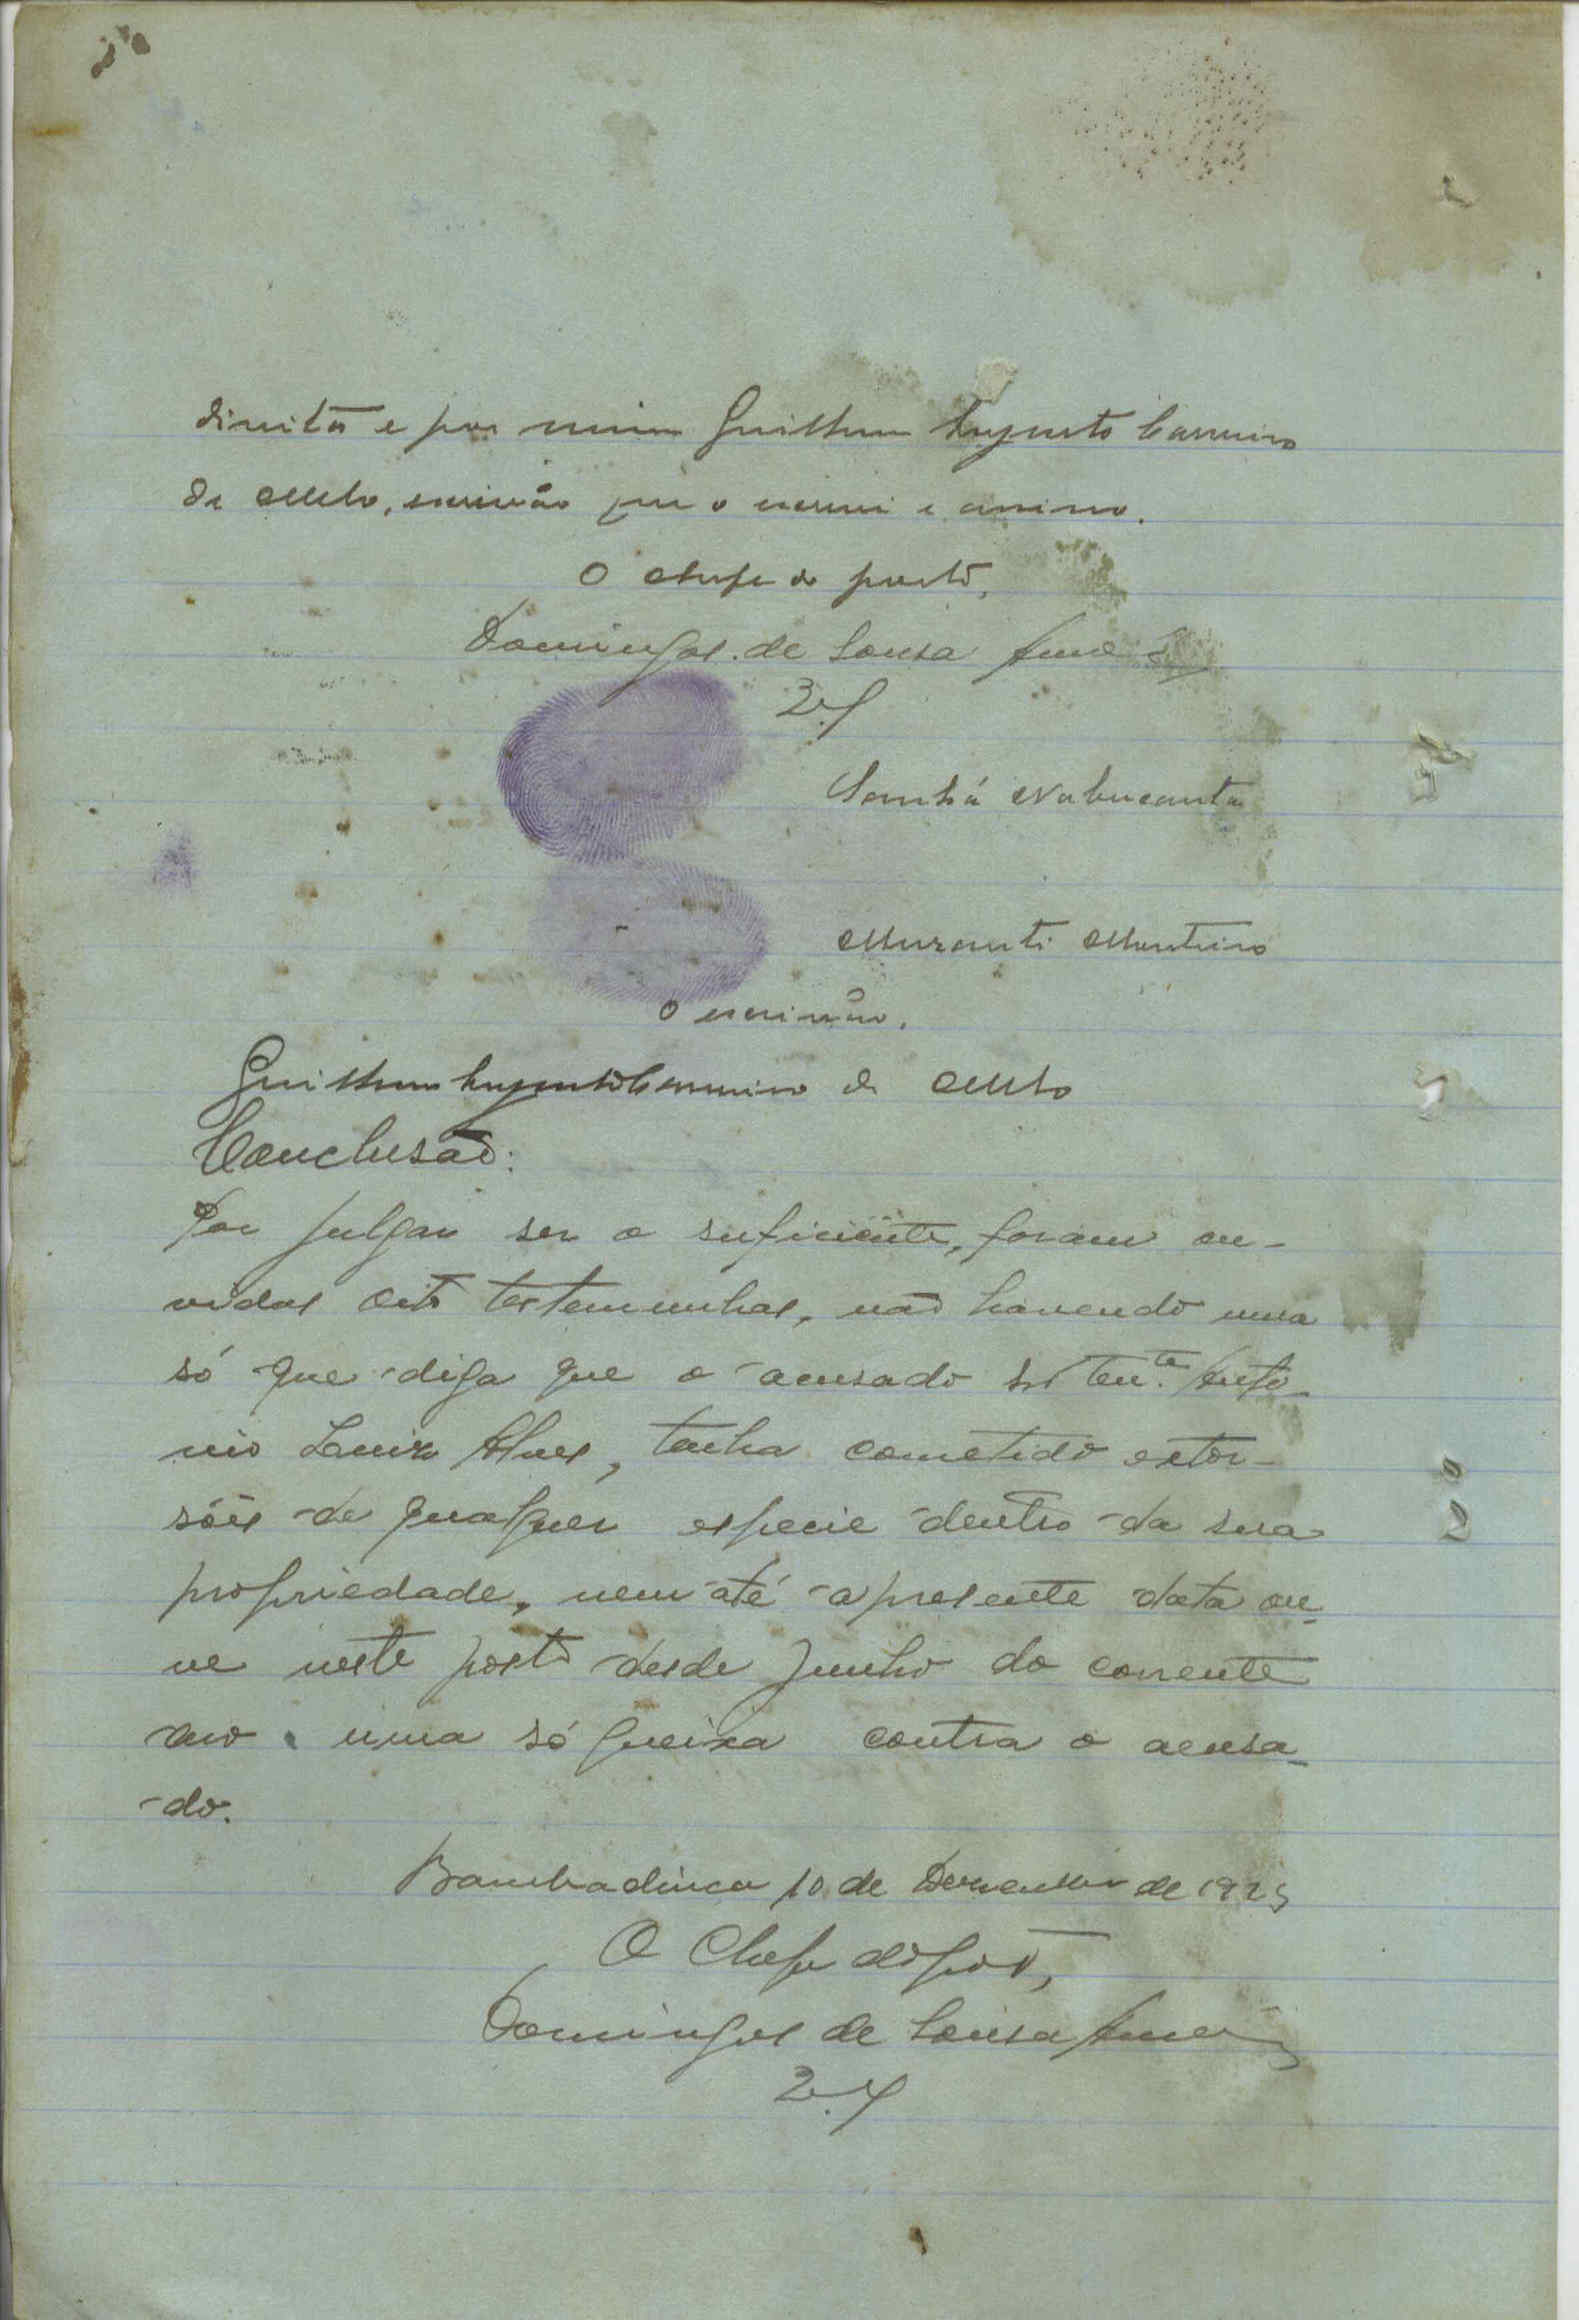 direita e por mim Guilherme Augusto Carneiro
de Mello, escrivão que o escrevi e assino.
O chefe do posto,
Domingos de Sousa
Samhá Nabucanta
Monteiro
O escrivão,
Guilherme Augusto Carneiro de Mello
Conclusão:
Por julgar ser o suficiente, foram ou-
vidas oito testemunhas, não havendo uma
só que diga que o acusado Snr Ten.te Antó-
nio Luiz Alves, tenha cometido extor-
sões de qualquer especie dentro da sua
propriedade, nem até a presente data ou-
ve neste posto desde Junho do corrente
ano uma só queixa contra o acusa-
do.
Bambadinca 10 de Dezembro de 1925
O Chefe do posto,
Domingos de Sousa